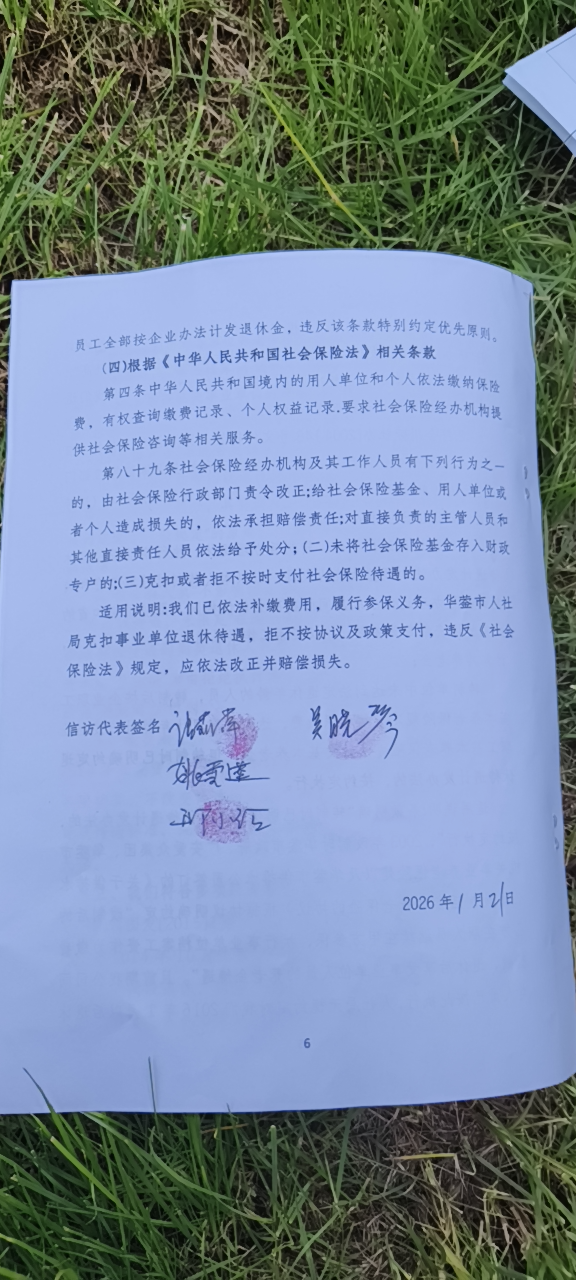 员工全部按企业办法计发退休金，违反该条款特别约定优先原则。
(四)根据《中华人民共和国社会保险法》相关条款
第四条中华人民共和国境内的用人单位和个人依法缴纳保险
费，有权查询缴费记录、个人权益记录.要求社会保险经办机构提
供社会保险咨询等相关服务。
第八十九条社会保险经办机构及其工作人员有下列行为之一
的，由社会保险行政部门责令改正;给社会保险基金、用人单位或
者个人造成损失的，依法承担赔偿责任;对直接负责的主管人员和
其他直接责任人员依法给予处分；(二)未将社会保险基金存入财政
专户的;(三)克扣或者拒不按时支付社会保险待遇的。
适用说明:我们已依法补缴费用，履行参保义务，华蓥市人社
局克扣事业单位退休待遇，拒不按协议及政策支付，违反《社会
保险法》规定，应依法改正并赔偿损失。
信访代表签名 吴晓琴
2026年1月21日
6